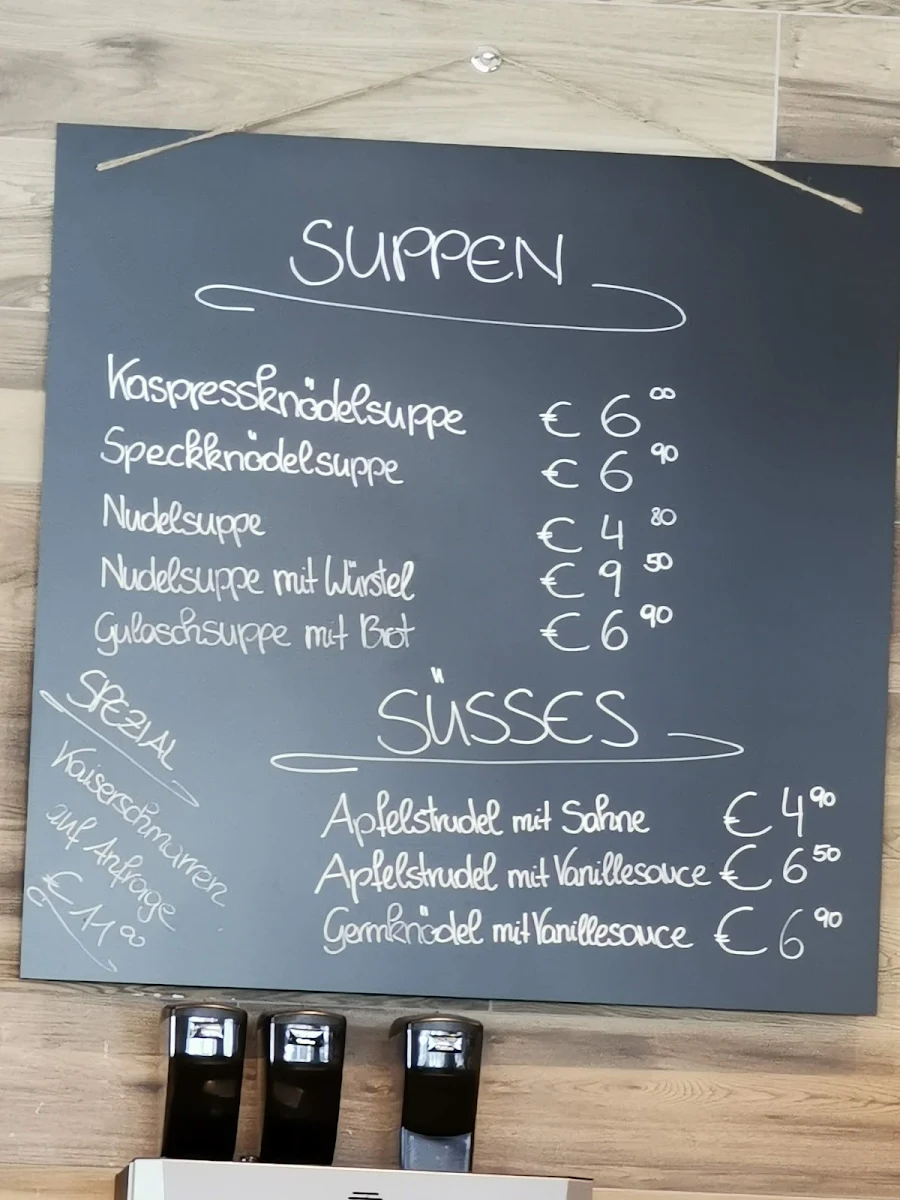 SUPPEN
Kaspressknödelsuppe € 6 00
Speckknödelsuppe € 6 90
Nudelsuppe € 4 80
Nudelsuppe mit Würstel € 9 50
Gulaschsuppe mit Brot € 6 90
SÜSSES
Apfelstrudel mit Sahne € 4 90
Apfelstrudel mit Vanillesauce € 6 50
Germknödel mit Vanillesauce € 6 90
SPEZIAL
Kaiserschmarren
auf Anfrage
€ 11 00